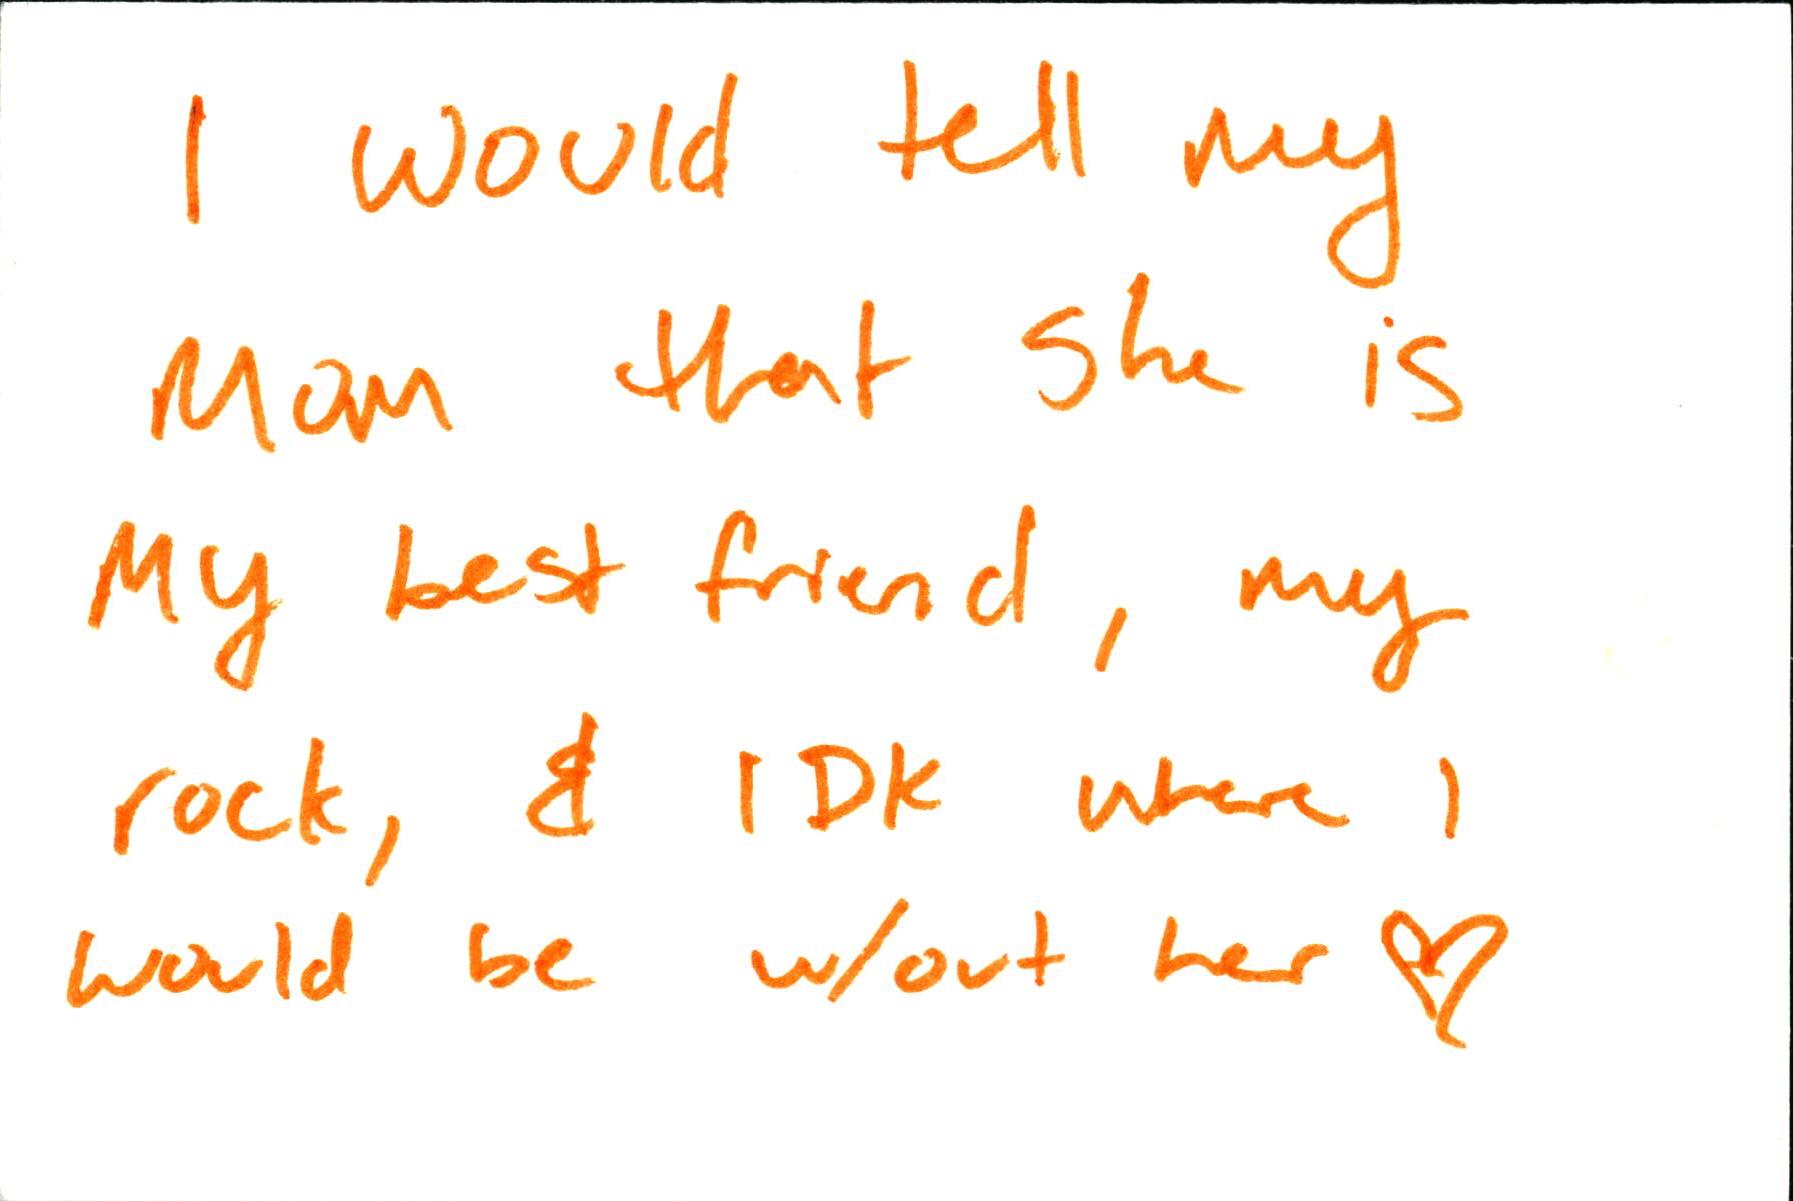 I would tell my
Mom that she is
My best friend, my
rock, & IDK where I
would be w/out her ♡